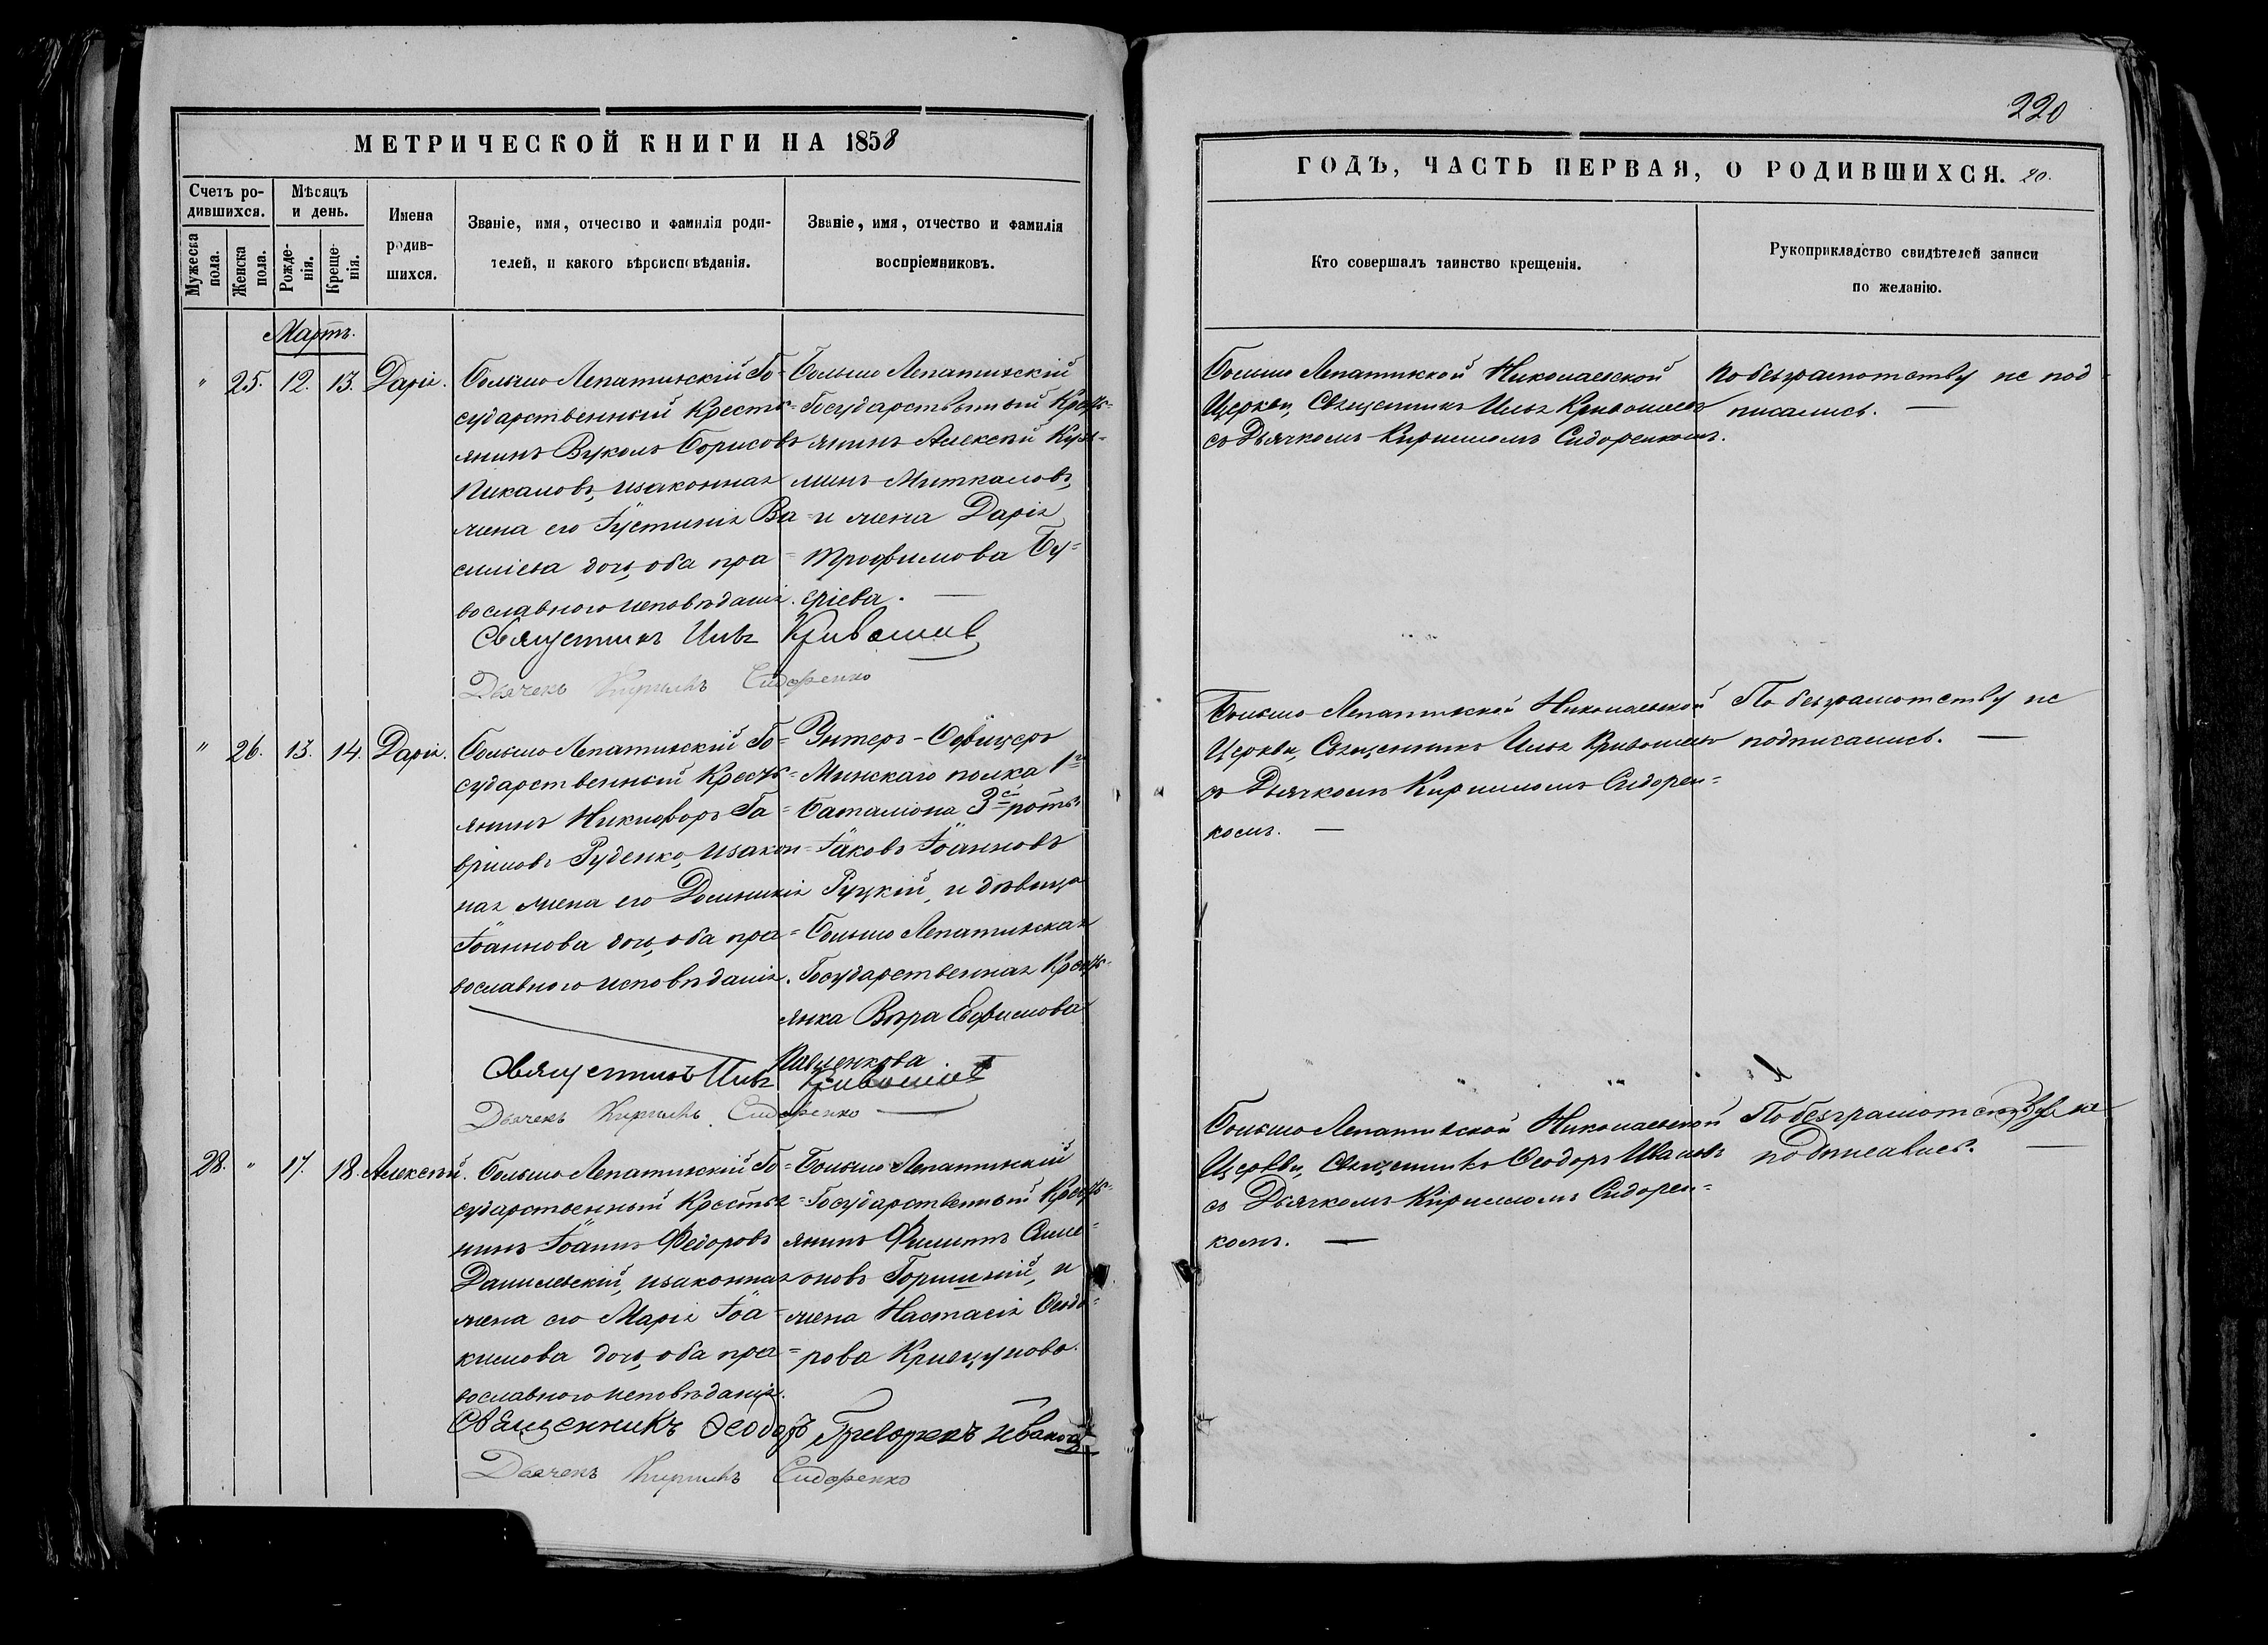 МЕТРИЧЕСКОЙ КНИГИ НА 1858
Счетъ ро-
дившихся.
Мужеска
пола.
Женска
пола.
Мѣсяцъ
и день.
Рожде-
нія.
Креще-
нія.
Имена
родив-
шихся.
Званіе, имя, отчество и фамилія роди-
телей, и какого вѣроисповѣданія.
Званіе, имя, отчество и фамилія
воспріемниковъ.
Мартъ.
" 25. 12. 13. Дарія.
Большо Лепатискій Го-
сударственный Кресть-
янинъ Вуколъ Борисовъ
Пикаловъ, изаконная
жена его Іустинія Ва-
силіева дочь, оба пра-
вославного исповѣданія.
Большо Лепатискій
Государственный Кресть-
янинъ Алексѣй Кузь-
минъ Миткаловъ,
и жена Дарія
Трофимова
Священникъ Илія Кривошеев
Дьячекъ Кирилъ Сидоренко
" 26. 13. 14. Дарія.
Большо Лепатискій Го-
сударственный Кресть-
янинъ Никифоръ Га-
вріиловъ Руденко, изакон-
ная жена его Домникія
Іоаннова дочь, оба пра-
вославного исповѣданія.
Унтеръ-Офицеръ
Минскаго полка 1го
Баталіона 3ей роты
Іаковъ Іоанновъ
Руцкій, и дѣвица
Большо Лепатиская
Государственная Кресть-
янка Вѣра Евфимова
Павленкова
Священникъ Илія Кривошеев
Дьячекъ Кирилъ Сидоренко
28. " 17. 18. Алексѣй.
Большо Лепатискій Го-
сударственный Крестья-
нинъ Іоаннъ Федоровъ
Данилевскій, изаконная
жена его Марія Іоа-
кимова дочь, оба пра-
вославного исповѣданія.
Большо Лепатискій
Государственный Кресть-
янинъ Филиппъ Симе-
оновъ и
жена Настасія Феодо-
рова
Священникъ Феодоръ Григорьевъ Ивановъ
Дьячекъ Кирилъ Сидоренко
220
ГОДЪ, ЧАСТЬ ПЕРВАЯ, О РОДИВШИХСЯ. 20.
Кто совершалъ таинство крещенія.
Рукоприкладство свидѣтелей записи
по желанію.
Большо Лепатиской Николаевской
Церкви, Священникъ Илія Кривошеев
съ Дьячкомъ Кирилломъ Сидоренкомъ.
По безграмотству не под-
писались.
Большо Лепатиской Николаевской
Церкви, Священникъ Илія Кривошеев
съ Дьячкомъ Кирилломъ Сидорен-
комъ.
По безграмотству не
подписались.
Большо Лепатиской Николаевской
Церкви, Священникъ Феодоръ Ивановъ
съ Дьячкомъ Кирилломъ Сидорен-
комъ.
По безграмотству не
подписались.